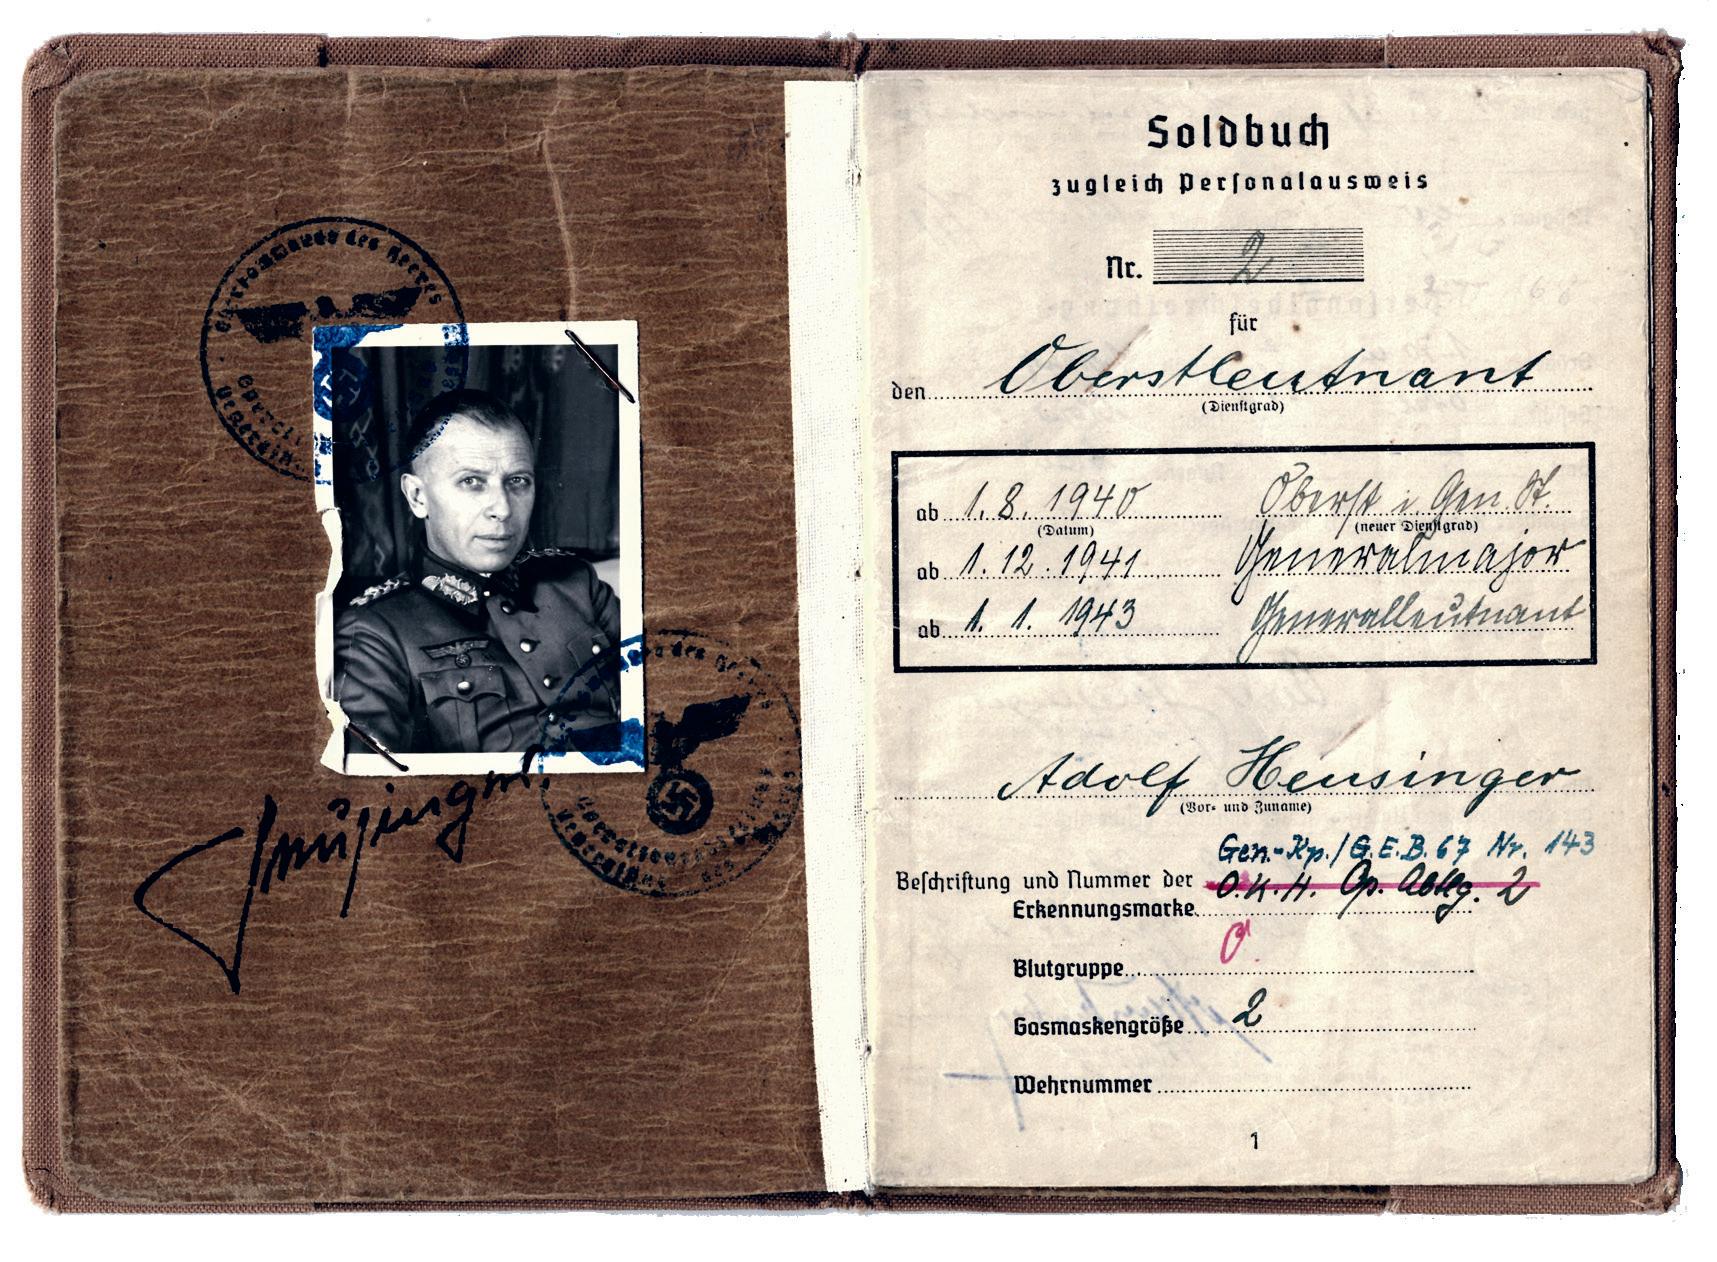 Oberkommando des Heeres
Heusinger.
Soldbuch
zugleich Personalausweis
Nr. 2
für
den Oberstleutnant
(Dienstgrad)
ab 1.8.1940 Oberst i. Gen. St.
(Datum) (neuer Dienstgrad)
ab 1.12.1941 Generalmajor
ab 1.1.1943 Generalleutnant
Adolf Heusinger
(Vor- und Zuname)
Gen.-Kp./G.E.B. 67 Nr. 143
Beschriftung und Nummer der O.K.H. Op. Abtlg. 2
Erkennungsmarke
Blutgruppe 0
Gasmaskengröße 2
Wehrnummer
1